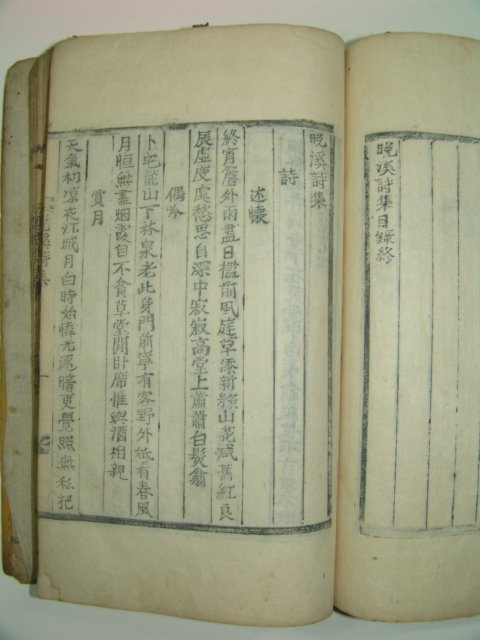 晚溪詩集目録終
晚溪詩集
詩
述懷
終宵簷外雨盡日檻前風庭草添新綠山花減舊紅良
辰虛度處愁思自深中寂寂高堂上蕭蕭白髮翁
偶吟
卜宅龍山下林泉老此身門前寧有客野外看春風
月恒無盡烟霞自不貧草堂閒卧席惟與酒相親
賞月
天氣初凉夜江城月白時始憐光暗更覺照無私把